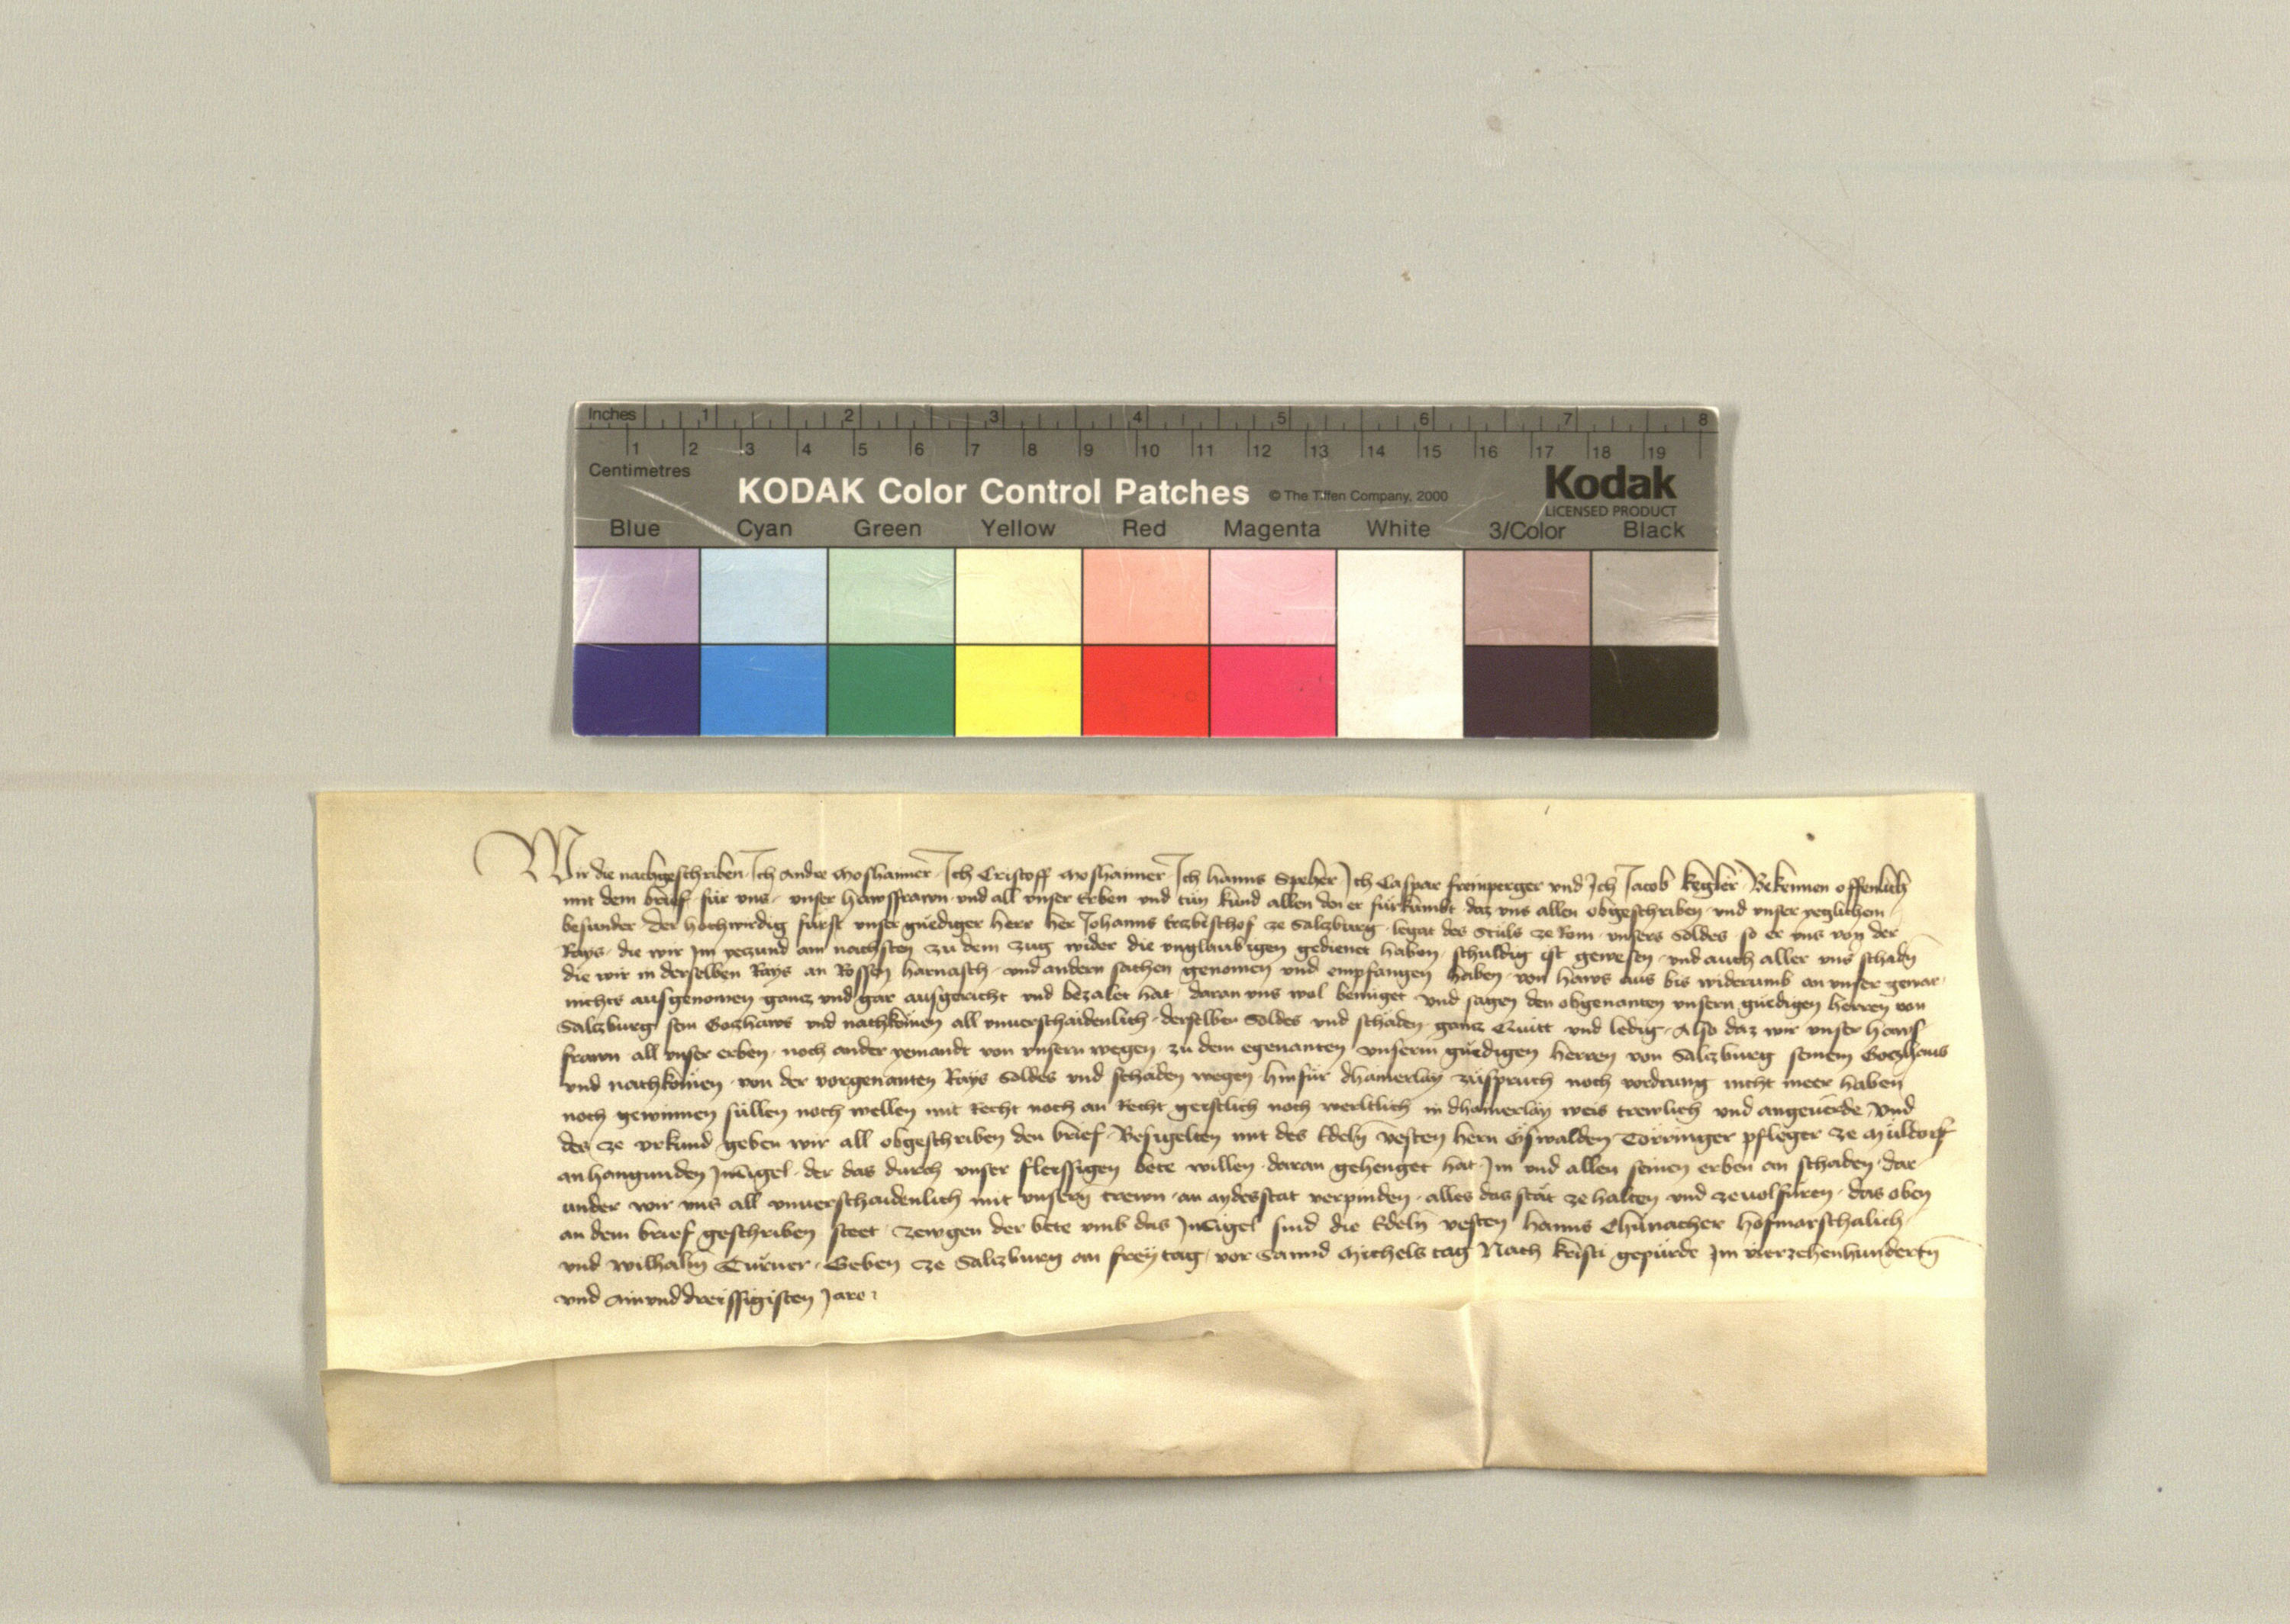 Inches 1 2 3 4 5 6 7 8
1 2 3 4 5 6 7 8 9 10 11 12 13 14 15 16 17 18 19
Centimetres
KODAK Color Control Patches © The Tiffen Company, 2000 Kodak
LICENSED PRODUCT
Blue Cyan Green Yellow Red Magenta White 3/Color Black
Wir die nachgeschriben Ich Andre Moshaimer Ich Cristoff Moshaimer Ich Hanns Speher Ich Caspar freinperger vnd Ich Jacob kegler Bekennen offenlich
mit dem brief für vns vnser hawsfrawn vnd all vnser Erben vnd tün kund allen den er fürkümbt daz vns allen obgeschriben vnd vnser yeglichem
besunder Der hochwirdig fürst vnser gnediger herr her Johanns Erzbischof ze Salczburg legat des Stuls ze Rom vnsers Soldes so er vns von der
Rays die wir Im yeczund am nachsten zu dem zug wider die vnglaubigen gedienet haben schuldig ist gewesen vnd auch aller vns schadn
die wir in derselben Rays an Rossen harnasch vnd andern sachen genomen vnd empfangen haben von haws aus bis widerumb an vnser gewar
nichts ausgenomen gancz vnd gar ausgericht vnd bezalet hat daran vns wol benüget vnd sagen den obgenanten vnsern gnedigen herren von
Salczburg sein Goczhaws vnd nachkomen all vnuerschaidenlich derselben Soldes vnd schaden gancz Quitt vnd ledig Also daz wir vnser haws
frawn all vnser erben noch ander yemandt von vnsern wegen zu dem egenanten vnserm gnedigen herren von Salczburg seinem Goczhaus
vnd nachkomen von der vorgenanten Rays Soldes vnd schaden wegen hinfür dhainerlay züspruch noch vordrung nicht meer haben
noch gewinnen süllen noch wellen mit Recht noch an Recht geistlich noch werltlich in dhainerlay weis trewlich vnd angeuerde Vnd
des ze vrkund geben wir all obgeschriben den brief Besigelten mit des Edeln vesten hern Oswalden Törringer pfleger ze Müldorf
anhangunden Insigel der das durch vnser fleissigen bete willen daran gehenget hat Im vnd allen seinen erben an schaden dar
under wir vns all vnuerschaidenlich mit vnsern trewn an aydesstat verpinden alles das stät ze halten vnd zeuolfüren das oben
an dem brief geschriben steet zewgen der bete vmb das Insigel sind die Edeln vesten hanns Chünacher hofmarschalich
vnd Wilhalm Turner Geben ze Salczburg am freytag vor Sannd Michels tag Nach kristi gepürde Im vierzehenhundertn
vnd Ainvnddreissigisten Jare